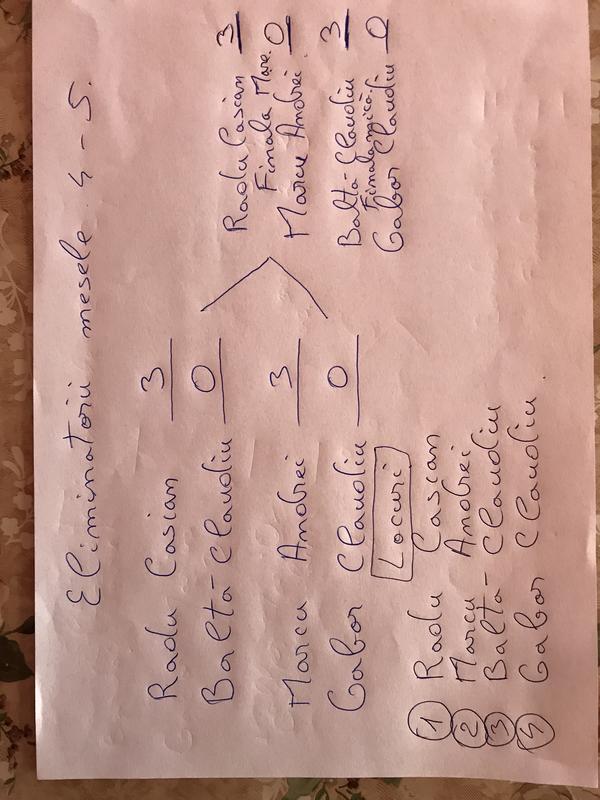 Eliminatorii mesele 4-5.
Radu Casian 3
Balta-Claudiu 0
Marcu Andrei 3
Gabor Claudiu 0
Radu Casian 3
Finala Mare.
Marcu Andrei 0
Balta-Claudiu 3
Finala mică.
Gabor Claudiu 0
Locuri
1 Radu Casian
2 Marcu Andrei
3 Balta-Claudiu
4 Gabor Claudiu.